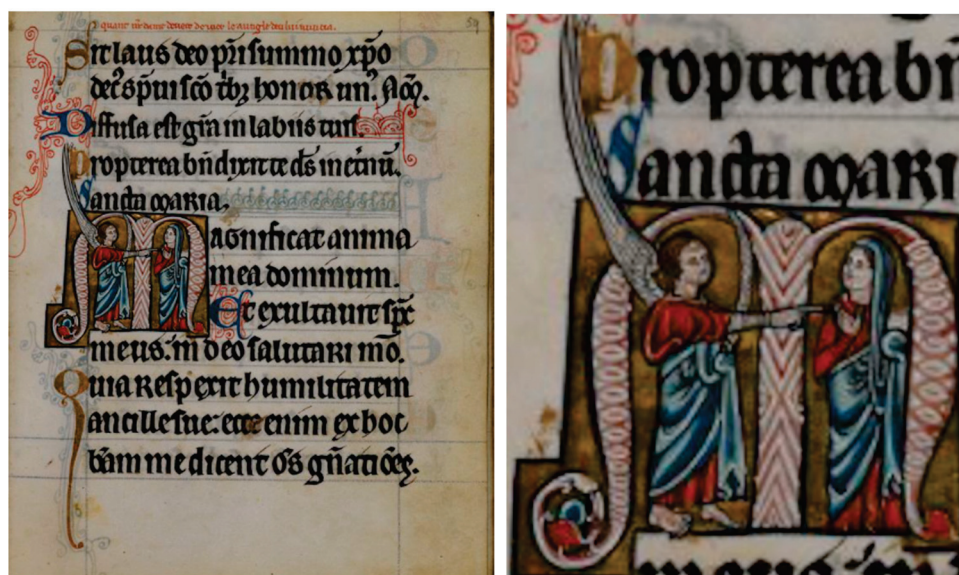 Sit laus deo pr̄i summo xp̄o
Diffusa est gr̄a in labiis tuis.
Propterea bn̄dixit te ds̄ in etnū.
Sancta maria.
Magnificat anima
mea dominum.
Et exultavit sp̄c
meus: in deo salutari mō.
Quia respexit humilitatem
ancille sue: ecce enim ex hoc
bām me dicent ōs gn̄atiōes.
Propterea bn̄
Sancta mari